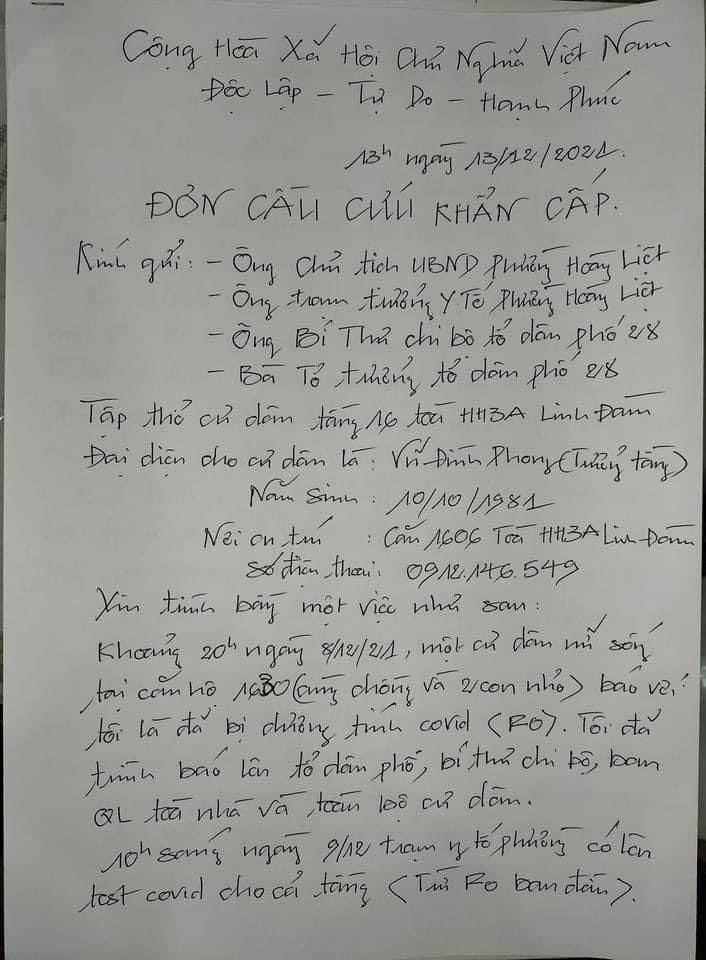 Cộng Hoà Xã Hội Chủ Nghĩa Việt Nam
Độc Lập - Tự Do - Hạnh Phúc
13h ngày 13/12/2021.
ĐƠN CẦU CỨU KHẨN CẤP.
Kính gửi: - Ông Chủ tịch UBND phường Hoàng Liệt
- Ông trạm trưởng Y Tế phường Hoàng Liệt
- Ông Bí Thư chi bộ tổ dân phố 28
- Bà Tổ trưởng tổ dân phố 28
Tập thể cư dân tầng 16 toà HH3A Linh Đàm
Đại diện cho cư dân là: Vũ Đình Phong (Trưởng tầng)
Năm sinh: 10/10/1981
Nơi cư trú: Căn 1606 Toà HH3A Linh Đàm
Số điện thoại: 0912.146.549
Xin trình bày một việc như sau:
Khoảng 20h ngày 8/12/21, một cư dân nữ sống
tại căn hộ 1630 (cùng chồng và 2 con nhỏ) báo với
tôi là đã bị dương tính covid (F0). Tôi đã
trình báo lên tổ dân phố, bí thư chi bộ, ban
QL toà nhà và toàn bộ cư dân.
10h sáng ngày 9/12 trạm y tế phường có lên
test covid cho cả tầng (Trừ F0 ban đầu).